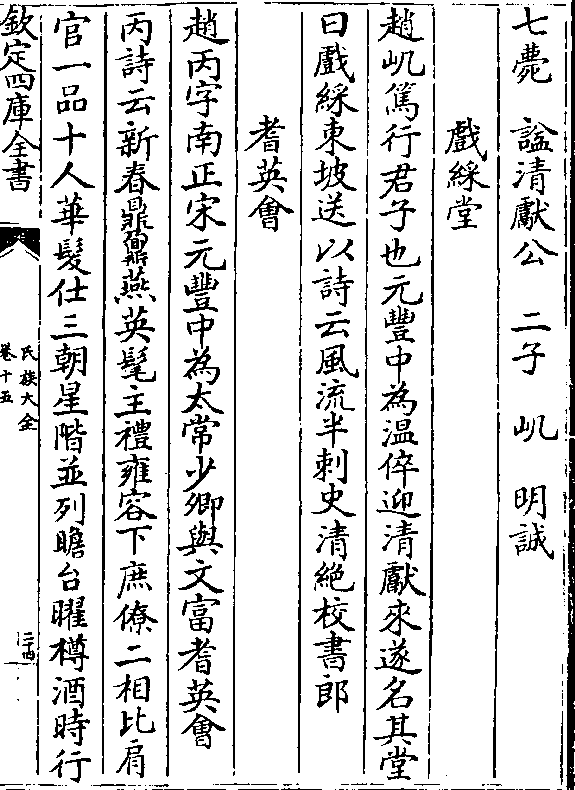 七薨　諡清獻公　二子　屼　明誠
戲綵堂
趙屼篤行君子也元豐中為温倅迎清獻來遂名其堂
曰戲綵東坡送以詩云風流半刺史清絶校書郎
耆英會
趙丙字南正宋元豐中為太常少卿與文富耆英會
丙詩云新春鼎鼐燕英髦主禮雍容下庶僚二相比肩
官一品十人華髮仕三朝星階並列瞻台曜樽酒時行
欽定四庫全書
氏族大全
卷十五
二十四